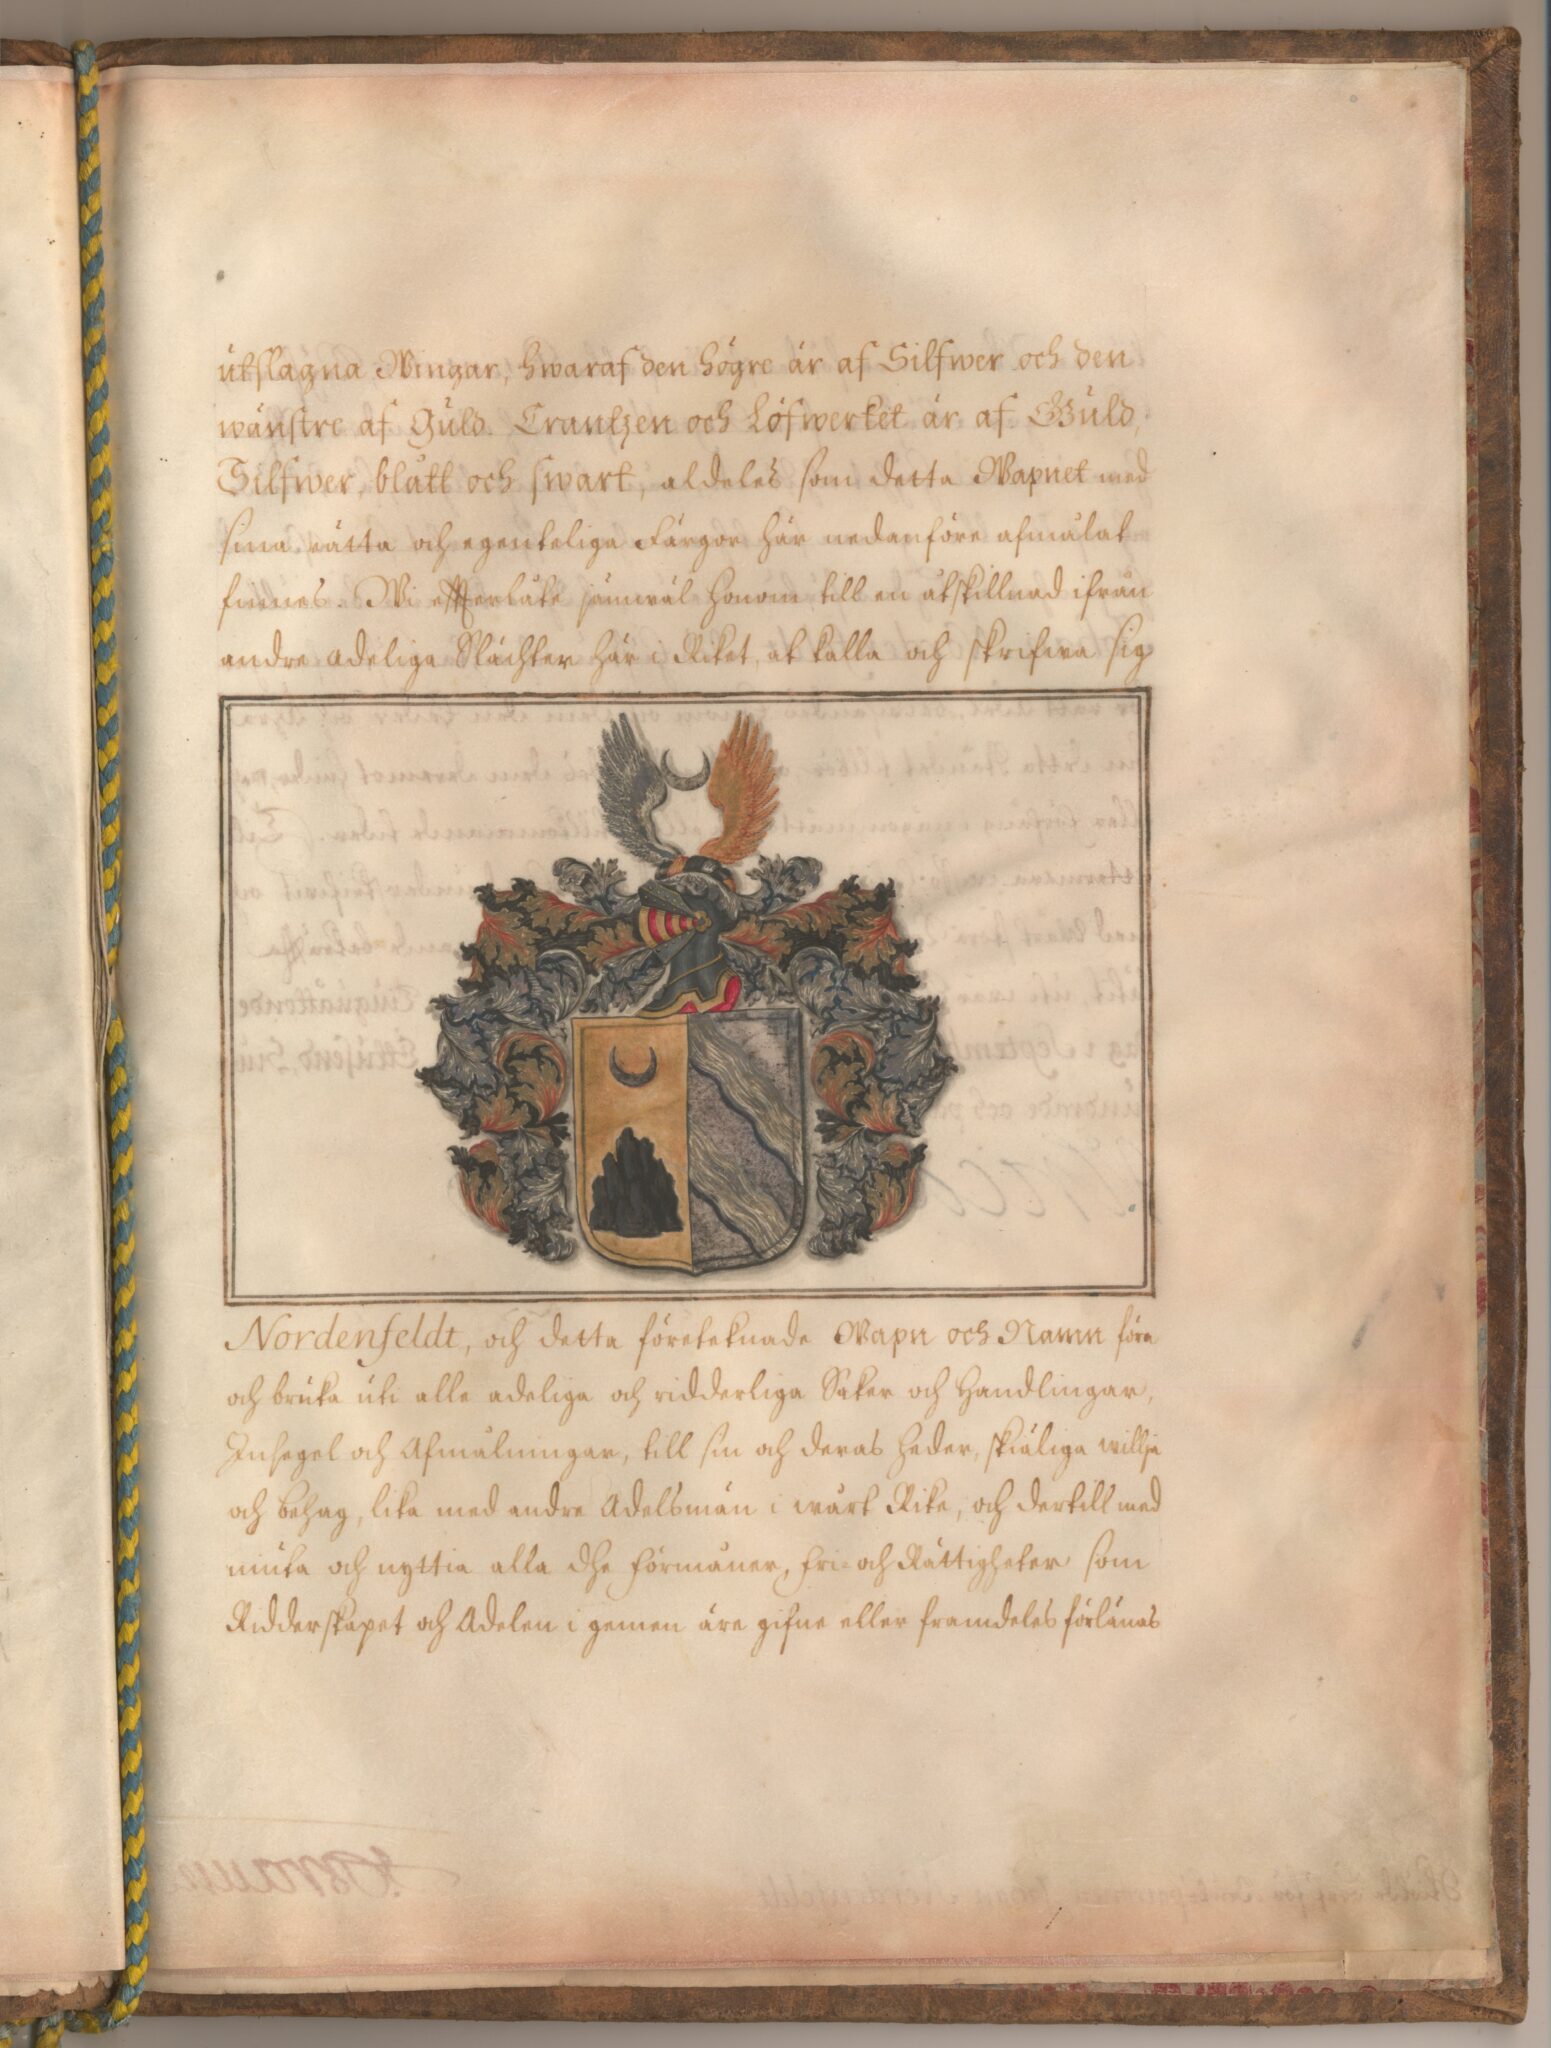 utslagna Wingar, hwaraf den högre är af Silfwer och den
wänstre af Guld. Crantzen och Löfwerket är af Guld,
Silfwer, blått och swart, aldeles som detta Wapnet med
sina rätta och egenteliga Färgor här nedanföre afmålat
finnes. Wi efterlåte jämwäl honom till en åtskillnad ifrån
andre adeliga Slächter här i Riket, at kalla och skrifwa sig
Nordenfeldt, och detta företeknade Wapn och Namn föra
och bruka uti alle adeliga och ridderliga Saker och Handlingar,
Insegel och Afmålningar, till sin och deras heder, skiäliga willja
och behag, lika med andre Adelsmän i wårt Rike, och dertill med
niuta och nyttia alla dhe förmåner, fri- och Rättigheter som
Ridderskapet och Adelen i gemen äre gifne eller framdeles förlänas